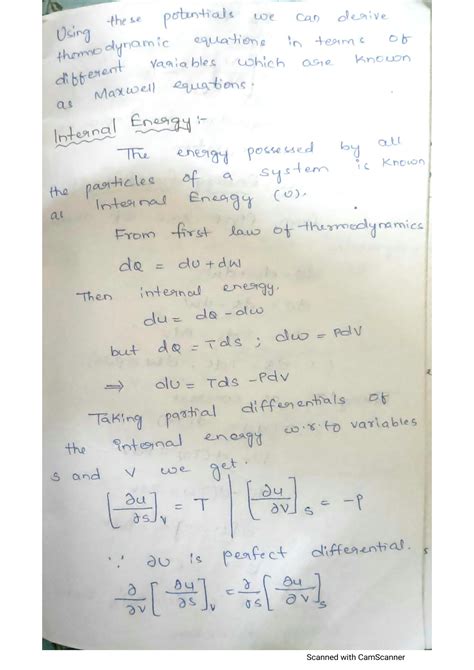 Using these potentials we can derive
thermodynamic equations in terms of
different variables which are known
as Maxwell equations.
Internal Energy :-
The energy possessed by all
the particles of a system is known
as Internal Energy (U).
From first law of thermodynamics
dQ = dU + dW
Then internal energy.
du = dQ - dw
but dQ = Tds ; dw = PdV
⇒ dU = Tds - PdV
Taking partial differentials of
the internal energy w.r.to variables
s and V we get.
[∂u/∂s]_V = T | [∂u/∂V]_S = -P
∵ ∂U is perfect differential.
∂/∂V [∂u/∂s]_V = ∂/∂s [∂u/∂V]_S
Scanned with CamScanner